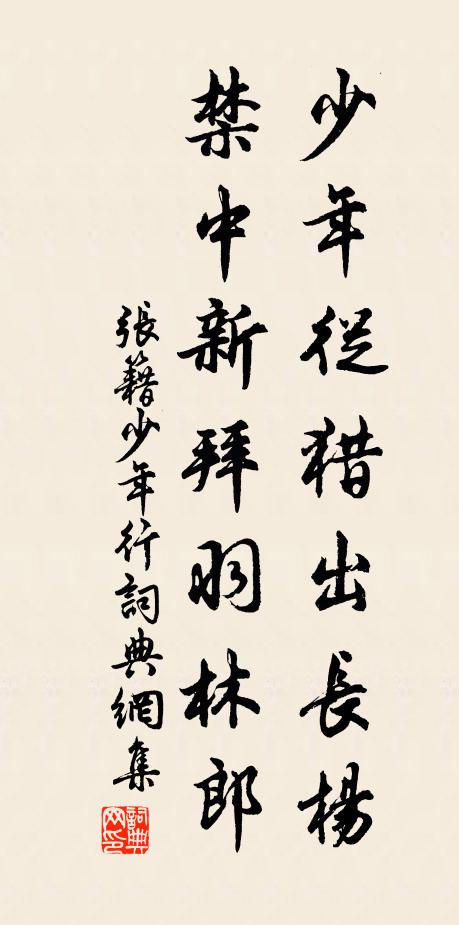 少年從猎出長楊
禁中新拜羽林郎
張籍少年行詞典網集
詞典网印